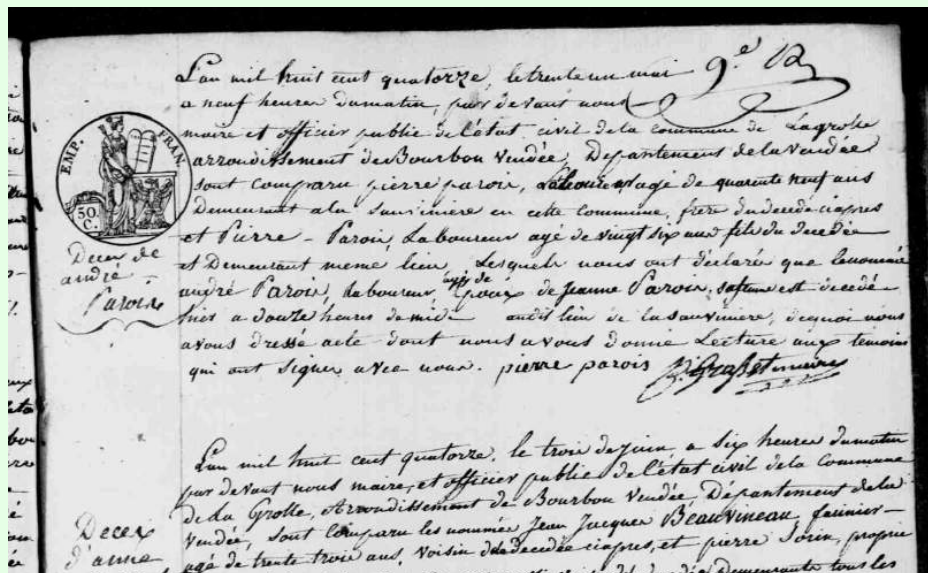 L'an mil huit cent quatorze, le trente un mai 9.e
a neuf heures du matin, par devant nous
maire et officier public de l'état civil de la commune de Lagrolle
arrondissement de Bourbon Vendée, Departement de la Vendée
sont comparu pierre parois, agé de quarente neuf ans
Demeurant a la Sauviniere en cette commune, frere du decedé ciapres
et Pierre - Parois, Laboureur agé de vingt six ans fils du decedée
et Demeurant meme lieu, Lesquels nous ont declaré que
andré Parois, laboureur, agé de Epoux de Jeanne Parois, sa femme est decedé
hier a douze heures de midi audit lieu de la sauviniere, dequoi nous
avons dressé acte dont nous avons donné Lecture aux temoins
qui ont signer avec nous. pierre parois
EMP. FRAN.
50.
C.
Decex de
andré -
Parois
L'an mil huit cent quatorze, le trois de juin, a six heures du matin
par devant nous maire, et officier public de l'état civil de la Commune
de La Grolle, Arrondissement de Bourbon Vendée, Département de la
Vendée, sont Comparu les nommés Jean Jacques Beauvineau, farinier -
agé de trente trois ans, voisin de la decedée ciapres, et pierre Sorin, propriè
demeurants tous les
Decex
d'anne